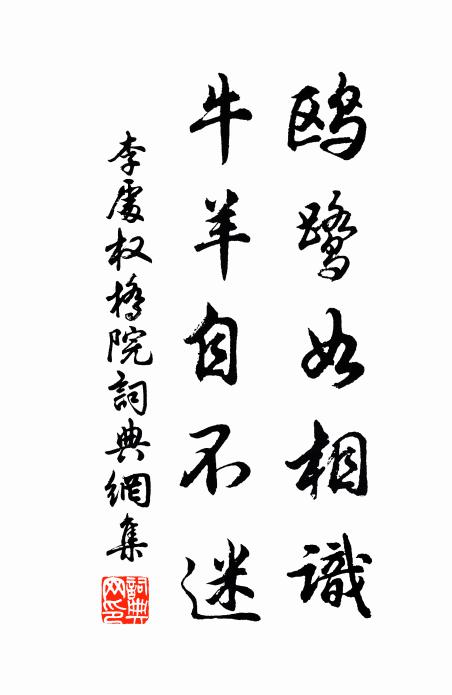 鸥鹭如相識
牛羊自不迷
李處权橋院詞典網集
詞典網印